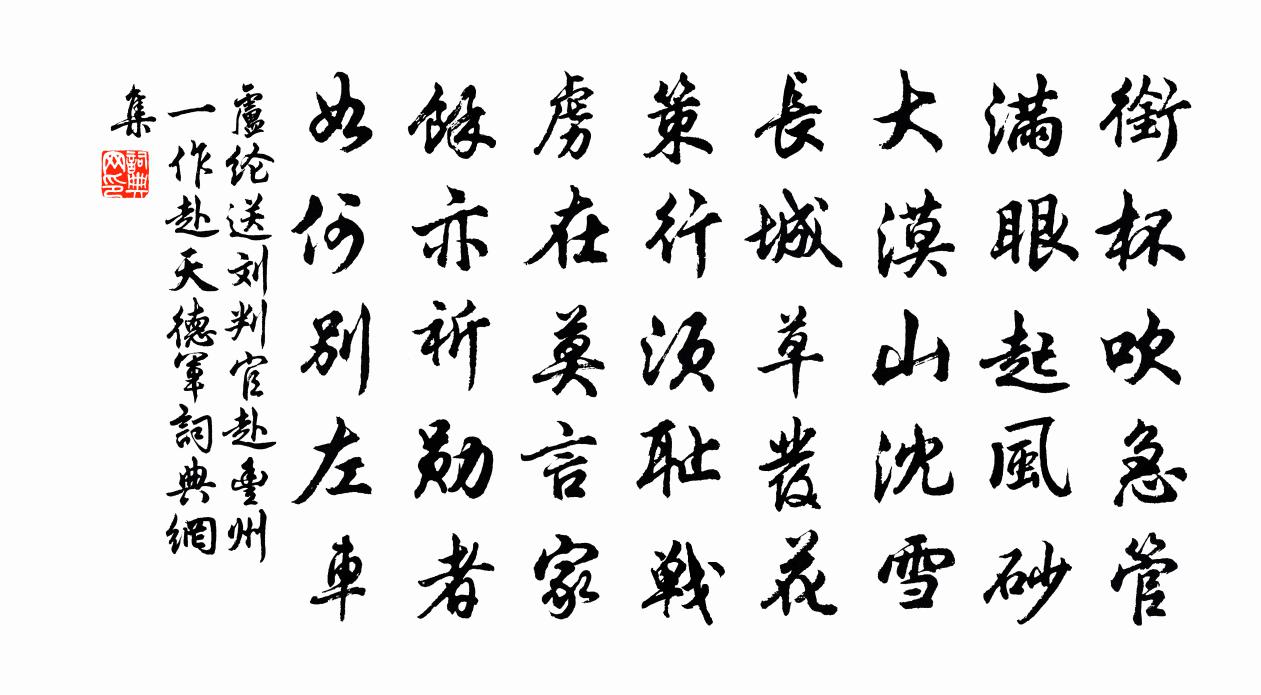 銜杯吹急管
滿眼起風砂
大漠山沈雪
長城草發花
策行須恥戰
虜在莫言家
餘亦祈勛者
如何別左車
盧纶送刘判官赴豐州
一作赴天德軍詞典網
集
詞典
网印